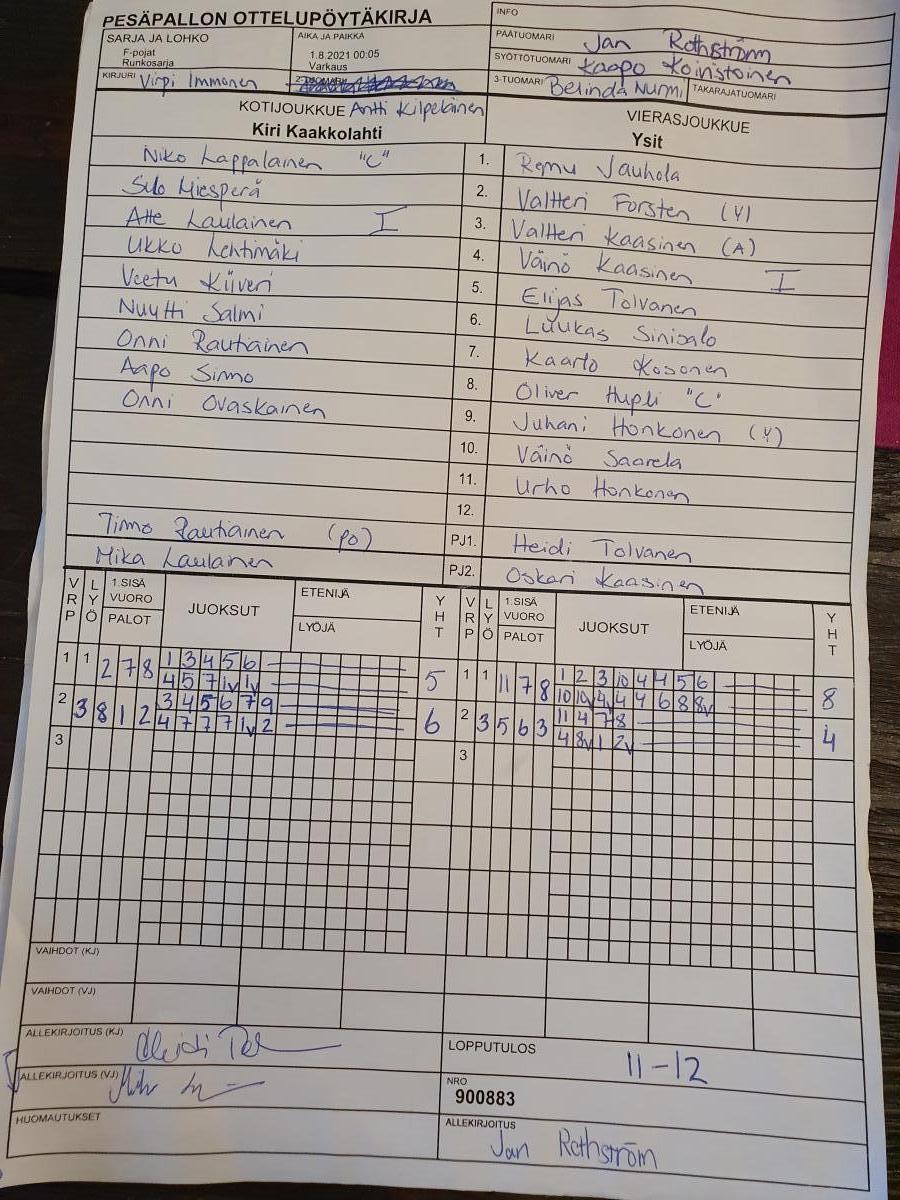 PESÄPALLON OTTELUPÖYTÄKIRJA
INFO
SARJA JA LOHKO
F-pojat
Runkosarja
AIKA JA PAIKKA
1.8.2021 00:05
Varkaus
PÄÄTUOMARI Jan Rothström
SYÖTTÖTUOMARI Kaapo Koiristoinen
KIRJURI Virpi Immonen
3-TUOMARI Belinda Nurmi
TAKARAJATUOMARI
KOTIJOUKKUE Antti Kilpeläinen
Kiri Kaakkolahti
VIERASJOUKKUE
Ysit
Niko Lappalainen "C" 1. Remu Jauhola
Sulo Miesperä 2. Valtteri Forsten (V)
Atte Laulainen I 3. Valtteri Kaasinen (A)
Ukko Lehtimäki 4. Väinö Kaasinen I
Veetu Kiiveri 5. Elijas Tolvanen
Nuutti Salmi 6. Luukas Sinisalo
Onni Rautiainen 7. Kaarto Kosonen
Aapo Simo 8. Oliver Hupli "C"
Onni Ovaskainen 9. Juhani Honkonen (V)
10. Väinö Saarela
11. Urho Honkonen
12.
Timo Rautiainen (po) PJ1. Heidi Tolvanen
Mika Laulainen PJ2. Oskari Kaasinen
VRP LYÖ 1.SISÄ VUORO PALOT JUOKSUT ETENIJÄ LYÖJÄ YHT VRP LYÖ 1.SISÄ VUORO PALOT JUOKSUT ETENIJÄ LYÖJÄ YHT
1 1 2 7 8 1 3 4 5 6 5 1 1 11 7 8 1 2 3 10 4 4 5 6 8
4 5 7 1v 1v 10 10 4 4 4 6 8 8v
2 3 8 1 2 3 4 5 6 7 9 6 2 3 5 6 3 11 4 7 8 4
4 7 7 7 1v 2 4 8v 1 2v
3 3
VAIHDOT (KJ)
VAIHDOT (VJ)
ALLEKIRJOITUS (KJ)
LOPPUTULOS 11-12
ALLEKIRJOITUS (VJ)
NRO
900883
HUOMAUTUKSET
ALLEKIRJOITUS
Jan Rothström